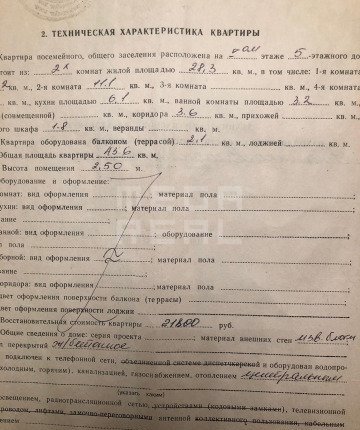 2. ТЕХНИЧЕСКАЯ ХАРАКТЕРИСТИКА КВАРТИРЫ
Квартира посемейного, общего заселения расположена на этаже 5-этажного до
тоит из: 2х комнат жилой площадью 28,3 кв. м, в том числе: 1-я комната
кв. м, 2-я комната 11.1 кв. м, 3-я комната кв. м, 4-я комната
кв. м, кухни площадью 6.1 кв. м, ванной комнаты площадью 3.2 кв. м,
(совмещенной) кв. м, коридора 3.6 кв. м, прихожей кв. м,
ого шкафа 1.8 кв. м, веранды кв. м.
Квартира оборудована балконом (террасой) 2.1 кв. м, лоджией кв. м.
Общая площадь квартиры 43.6 кв. м.
Высота помещения 2.50 м.
борудование и оформление:
омнат: вид оформления ; материал пола
ухни: вид оформления ; материал пола
ание
анной: вид оформления ; оборудование
л пола
борной: вид оформления ; материал пола
ание
оридора: вид оформления ; материал пола
цвет оформления поверхности балкона (террасы)
вет оформления поверхности лоджии
Восстановительная стоимость квартиры 21800 руб.
Общие сведения о доме: серия проекта материал внешних стен изв. блоки
л перекрытия ж/бетонное
подключен к телефонной сети, объединенной системе диспетчерской и оборудован водопро-
холодным, горячим), канализацией, газоснабжением, отоплением центральным
(указать каким)
освещением, радиотрансляционной сетью, устройствами (кодовыми замками), телевизионной
проводом, лифтами, замочно-переговорными антенной коллективного пользования, кабельным